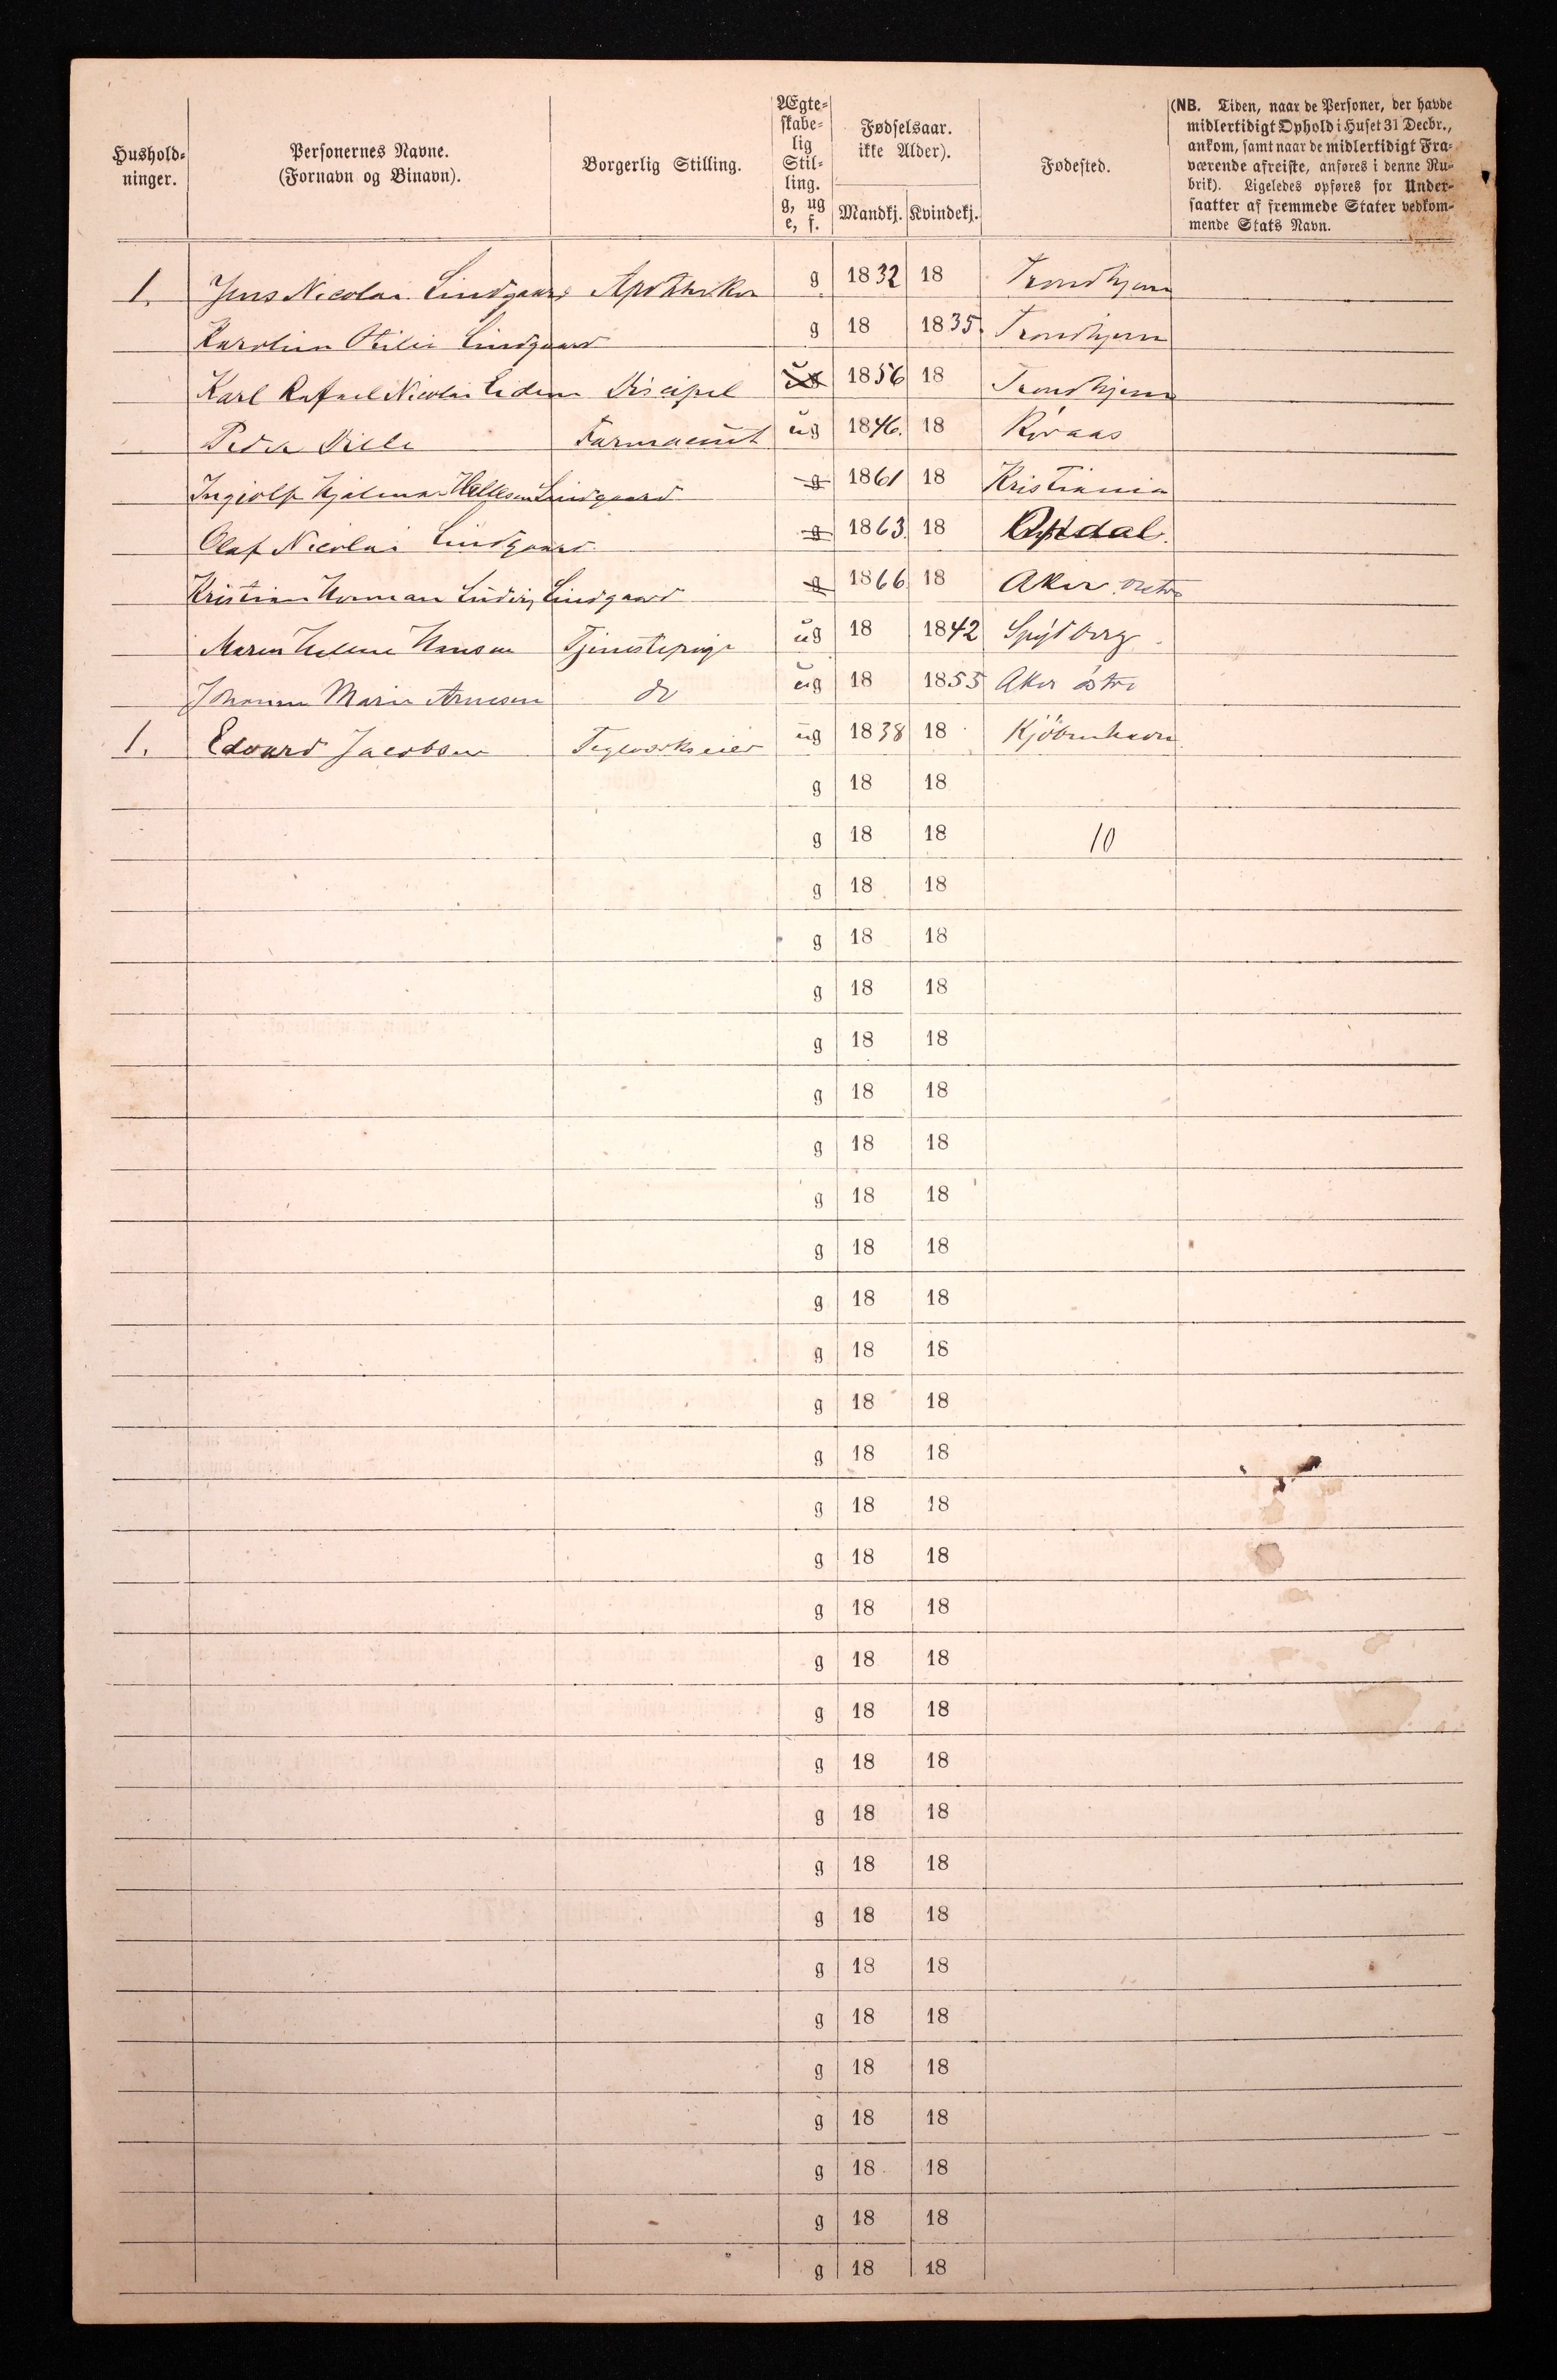 Hushold-
ninger.
Personernes Navne.
(Fornavn og Binavn).
Borgerlig Stilling.
Ægte-
skabe-
lig
Stil-
ling.
g, ug
e, f.
Fødselsaar.
ikke Alder).
Mandkj. Kvindekj.
Fødested.
(NB. Tiden, naar de Personer, der havde
midlertidigt Ophold i Huset 31 Decbr.,
ankom, samt naar de midlertidigt Fra-
værende afreiste, anføres i denne Ru-
brik). Ligeledes opføres for Under-
saatter af fremmede Stater vedkom-
mende Stats Navn.
1. Jens Nicolai Lindgaard Apotheker g 1832 18 Trondhjem
Karoline Otilie Lindgaard g 18 1835. Trondhjem
Karl Rafael Nicolai Eidem Discipel ug 1856 18 Trondhjem
Peder Dille Farmaceut ug 1846. 18 Röraas
Ingiolf Hjalmar Lindgaard g 1861 18 Kristiania
Olaf Nicolai Lindgaard. g 1863. 18 Opdal.
Kristian Herman Ludvig Lindgaard g 1866 18 Aker östre
Maren Helene Hansen Tjenestepige ug 18 1842 Spydberg
Johanne Marie Arnesen do ug 18 1855 Aker östre
1. Edvard Jacobsen Teglværkseier ug 1838 18 Kjöbenhavn
g 18 18
g 18 18 10
g 18 18
g 18 18
g 18 18
g 18 18
g 18 18
g 18 18
g 18 18
g 18 18
g 18 18
g 18 18
g 18 18
g 18 18
g 18 18
g 18 18
g 18 18
g 18 18
g 18 18
g 18 18
g 18 18
g 18 18
g 18 18
g 18 18
g 18 18
g 18 18
g 18 18
g 18 18
g 18 18
g 18 18